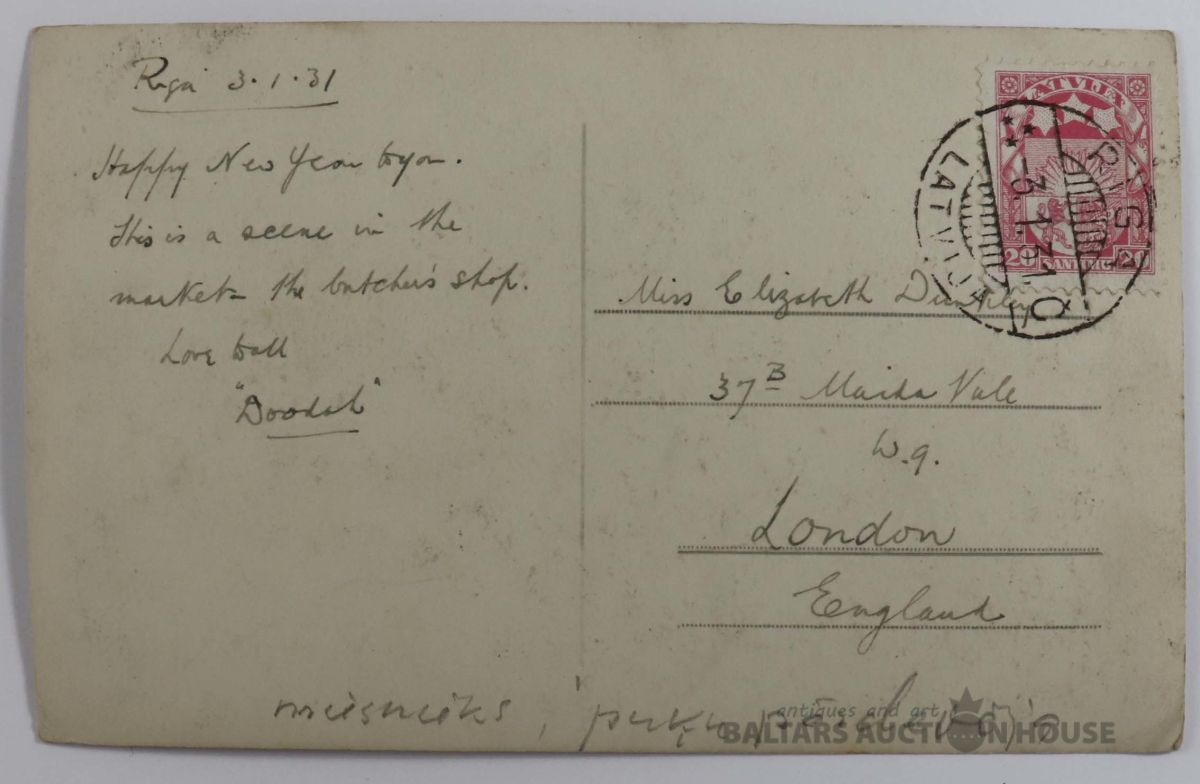 Riga 3.1.31
Happy New Year to you.
This is a scene in the
market - the butcher's shop.
Love to all
"Doodah"
LATVIJA
20 SANTIMU 20
RIGA
LATVIJA
-3.1.31
Miss Elizabeth
37B Maida Vale
W.9.
London
England
miesnieks, puķu pārdevējs
antiques and art
BALTARS AUCTION HOUSE